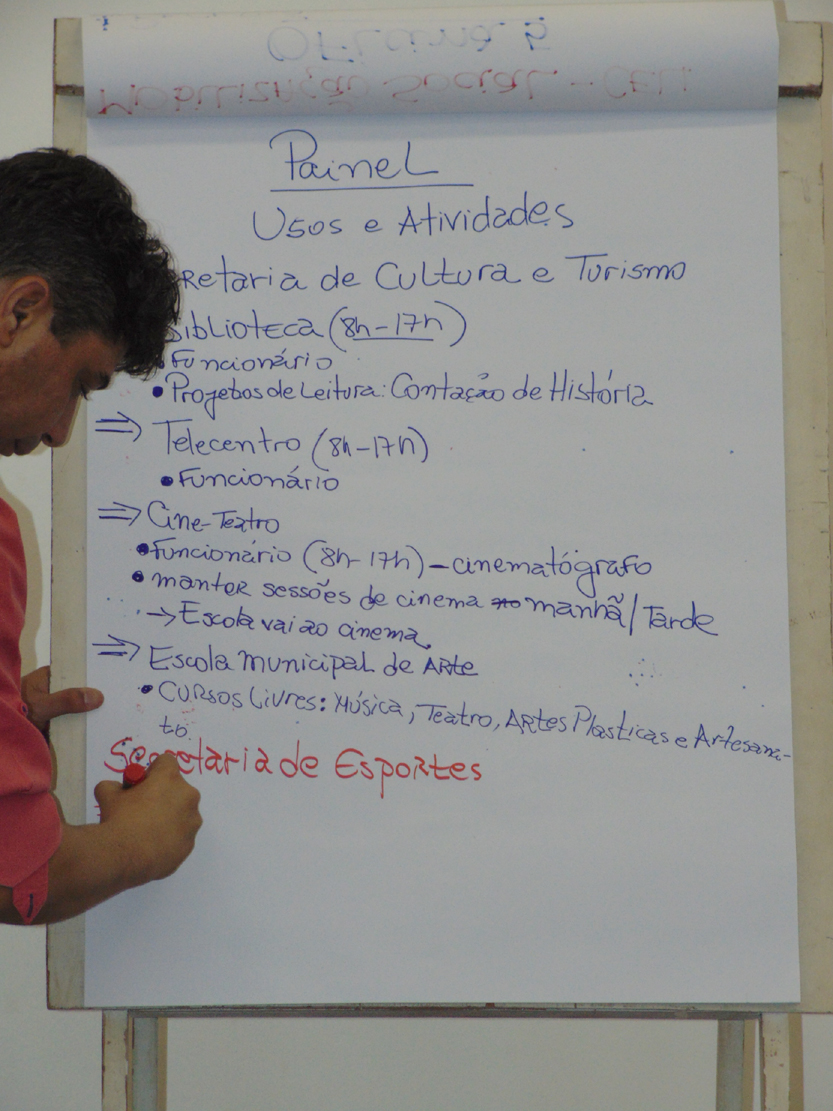 Oficina 5
Mobilização Social - CEU
Painel
Usos e Atividades
retaria de Cultura e Turismo
Biblioteca (8h-17h)
• Funcionário
• Projetos de Leitura: Contação de História
⇒ Telecentro (8h-17h)
• Funcionário
⇒ Cine-Teatro
• Funcionário (8h-17h) - cinematógrafo
• manter sessões de cinema manhã/Tarde
→ Escola vai ao cinema
⇒ Escola Municipal de Arte
• Cursos Livres: Música, Teatro, Artes Plasticas e Artesana-
to.
Secretaria de Esportes